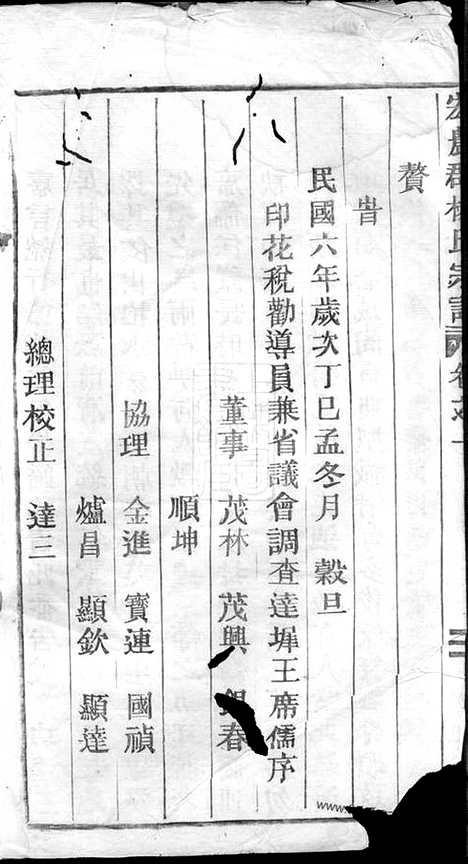 宏農郡楊氏宗譜 卷之一
贅
旹
民國六年歲次丁巳孟冬月 穀旦
印花稅勸導員兼省議會調查達墀王席儒序
董事 茂林 茂興 銀春
順坤
協理 金進 寶連 國禎
爐昌 顯欽 顯達
總理校正 達三
www.